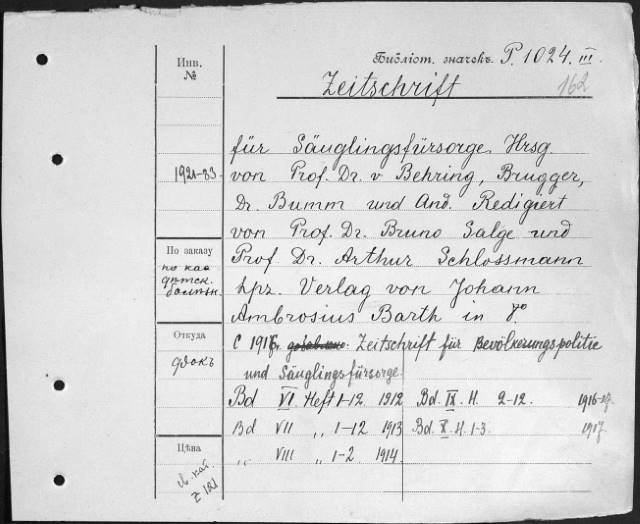 Инв.
№
Библіот. значекъ P. 1024. III.
Zeitschrift
162
für Säuglingsfürsorge. Hrsg.
von Prof. Dr. v Behring, Brugger,
1921-83
Dr. Bumm und And. Redigiert
von Prof. Dr. Bruno Salge und
По заказу
Prof. Dr. Arthur Schlossmann
по каа
дѣтск.
больн.
Lpz. Verlag von Johann
Ambrosius Barth in 8°
Откуда
С 1916г. добавлено: Zeitschrift für Bevölkerungspolitic
und Säuglingsfürsorge.
Bd VI Heft 1-12. 1912
Bd. IX. H. 2-12. 1916-17.
Bd VII „ 1-12 1913
Bd. X. H. 1-3. 1917.
„ VIII „ 1-2. 1914.
Цѣна
Z 121